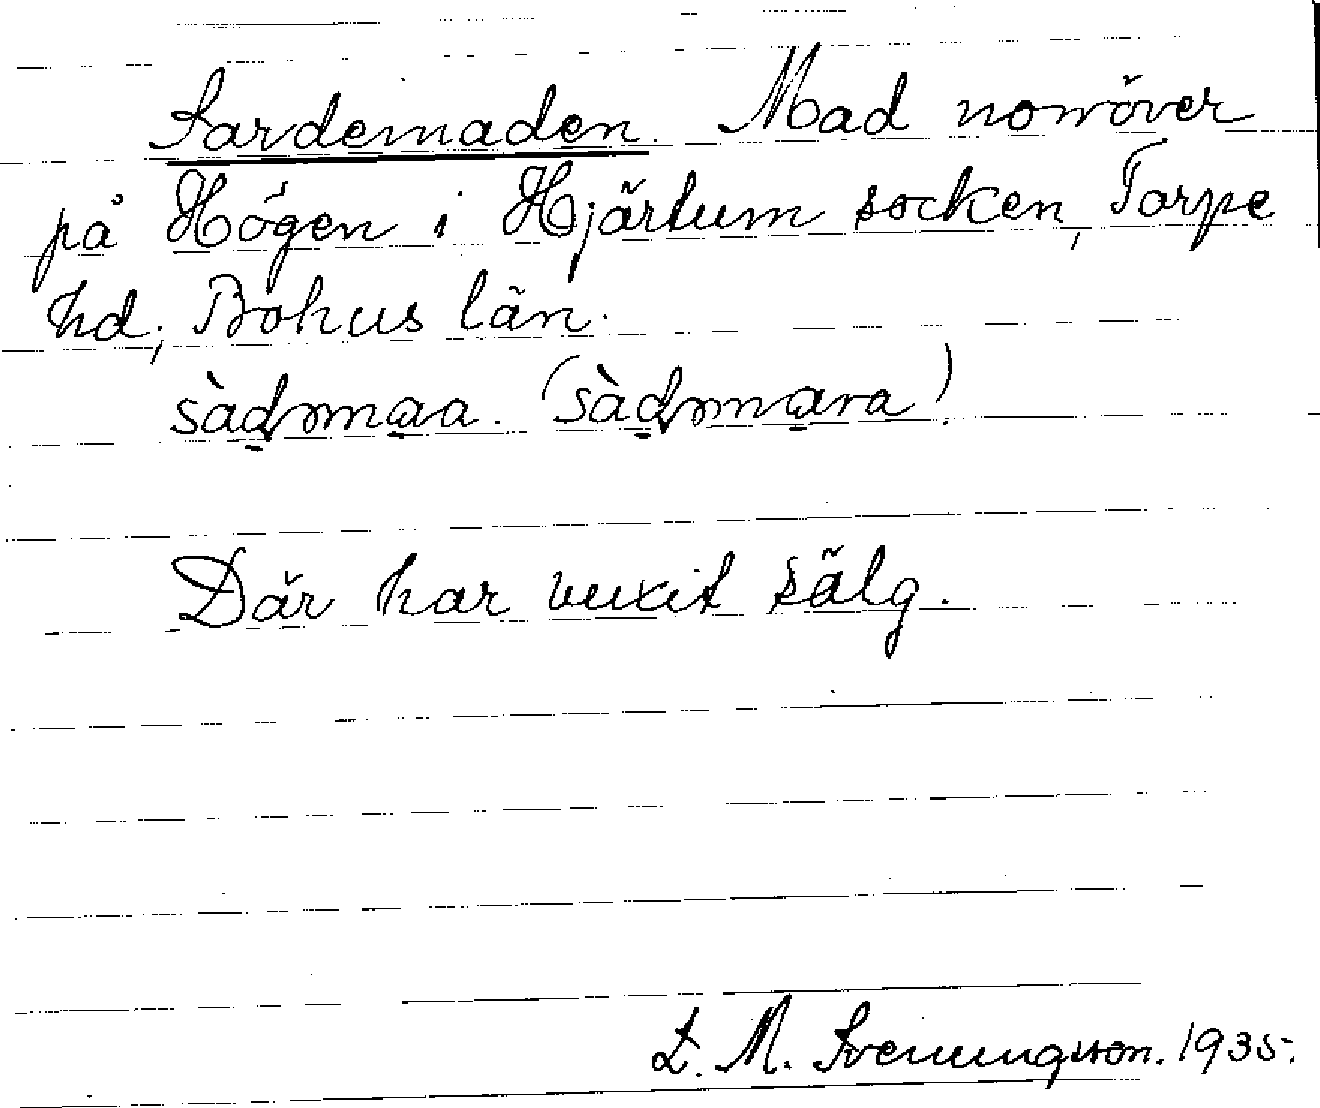 Sardemaden. Mad norröver
på Högen i Hjärtum socken, Torpe
hd, Bohus län.
sàdmmaa. (sàdmmara)
Där har vuxit sälg.
L. M. Svenungsson. 1935.